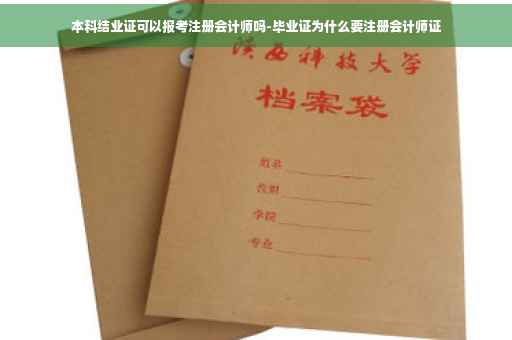 本科结业证可以报考注册会计师吗-毕业证为什么要注册会计师证
陕西科技大学
档案袋
姓名
学院
专业